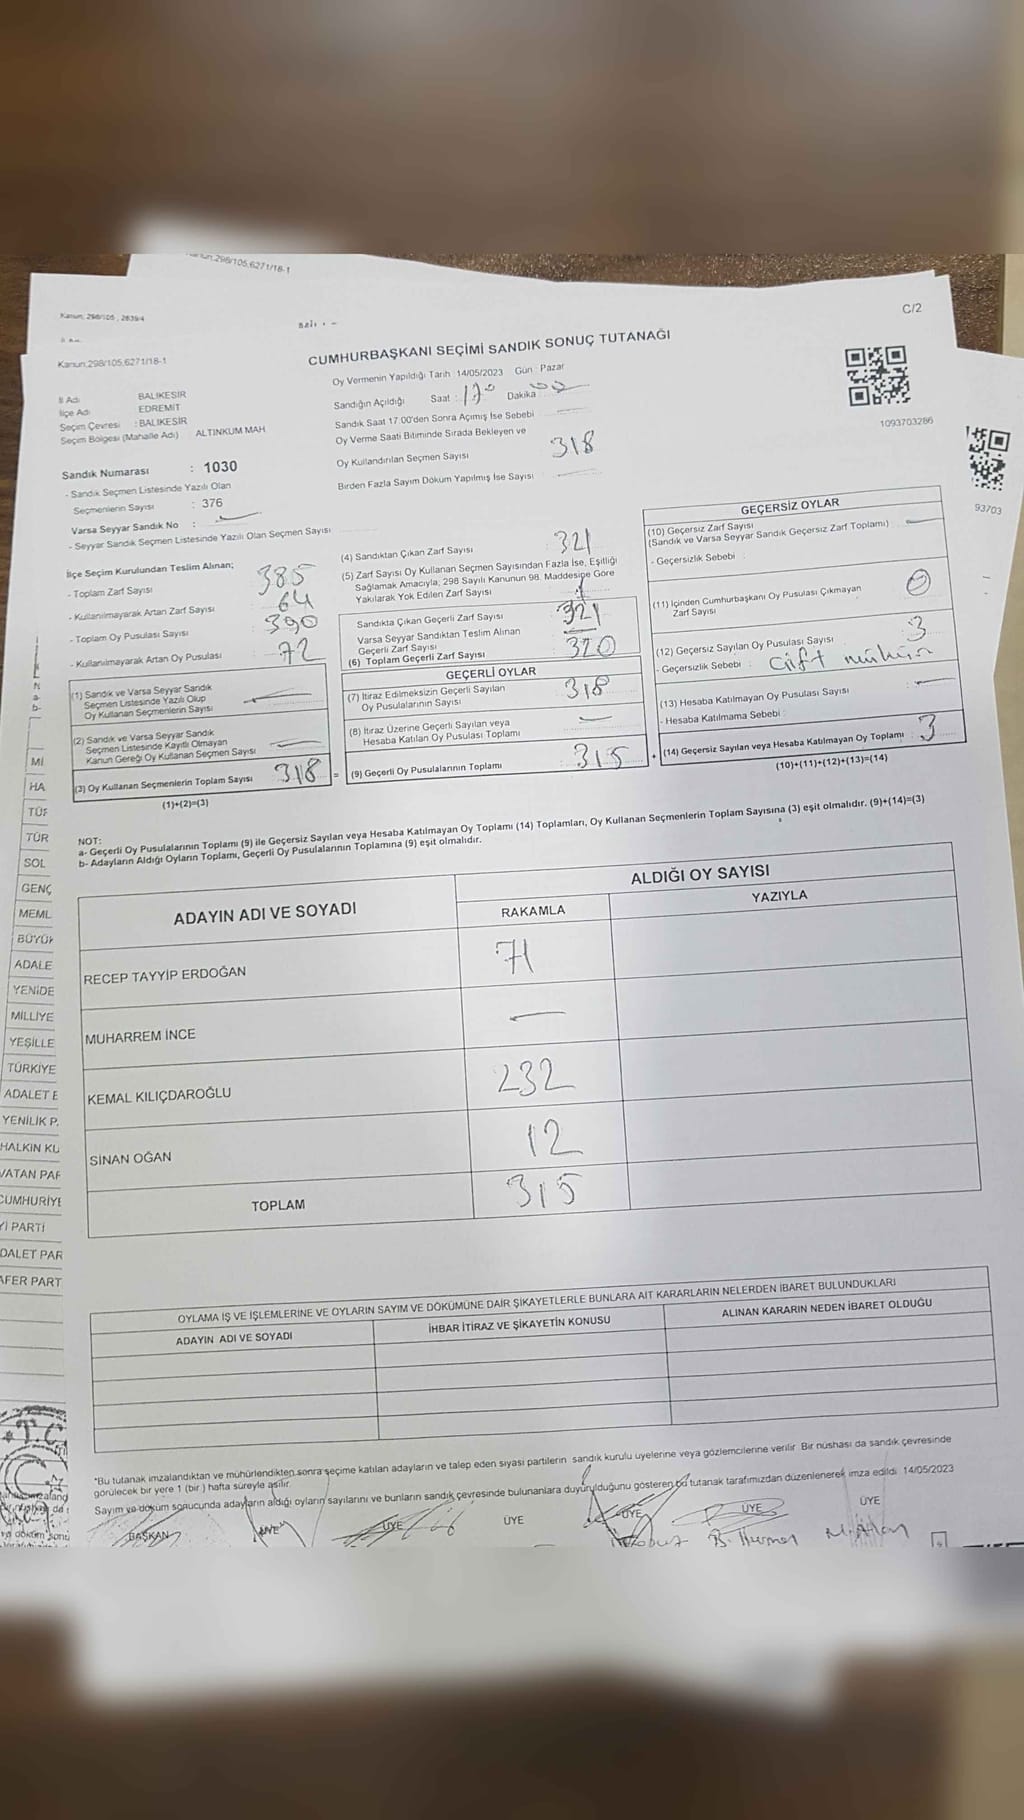 Kanun,298/105,6271/18-1
C/2
Kanun,298/105,6271/18-1
CUMHURBAŞKANI SEÇİMİ SANDIK SONUÇ TUTANAĞI
Oy Vermenin Yapıldığı Tarih :14/05/2023 Gün : Pazar
İl Adı BALIKESİR
İlçe Adı EDREMIT
Seçim Çevresi : BALIKESİR
Seçim Bölgesi (Mahalle Adı) ALTINKUM MAH
Sandığın Açıldığı Saat : Dakika :
Sandık Saat 17:00'den Sonra Açımış İse Sebebi
Oy Verme Saati Bitiminde Sırada Bekleyen ve
Oy Kullandırılan Seçmen Sayısı 318
Birden Fazla Sayım Döküm Yapılmış İse Sayısı
1093703286
93703
Sandık Numarası : 1030
- Sandık Seçmen Listesinde Yazılı Olan
Seçmenlerin Sayısı : 376
Varsa Seyyar Sandık No :
- Seyyar Sandık Seçmen Listesinde Yazılı Olan Seçmen Sayısı
İlçe Seçim Kurulundan Teslim Alınan;
- Toplam Zarf Sayısı : 385
- Kullanılmayarak Artan Zarf Sayısı : 64
- Toplam Oy Pusulası Sayısı : 390
- Kullanılmayarak Artan Oy Pusulası : 72
(1) Sandık ve Varsa Seyyar Sandık
Seçmen Listesinde Yazılı Olup
Oy Kullanan Seçmenlerin Sayısı
(2) Sandık ve Varsa Seyyar Sandık
Seçmen Listesinde Kayıtlı Olmayan
Kanun Gereği Oy Kullanan Seçmen Sayısı
(3) Oy Kullanan Seçmenlerin Toplam Sayısı 318 =
(1)+(2)=(3)
(4) Sandıktan Çıkan Zarf Sayısı : 321
(5) Zarf Sayısı Oy Kullanan Seçmen Sayısından Fazla İse, Eşitliği
Sağlamak Amacıyla; 298 Sayılı Kanunun 98. Maddesine Göre
Yakılarak Yok Edilen Zarf Sayısı : 1
Sandıkta Çıkan Geçerli Zarf Sayısı : 321
Varsa Seyyar Sandıktan Teslim Alınan
Geçerli Zarf Sayısı
(6) Toplam Geçerli Zarf Sayısı 320
GEÇERLİ OYLAR
(7) İtiraz Edilmeksizin Geçerli Sayılan
Oy Pusulalarının Sayısı : 318
(8) İtiraz Üzerine Geçerli Sayılan veya
Hesaba Katılan Oy Pusulası Toplamı
(9) Geçerli Oy Pusulalarının Toplamı 315 +
GEÇERSİZ OYLAR
(10) Geçersiz Zarf Sayısı
(Sandık ve Varsa Seyyar Sandık Geçersiz Zarf Toplamı)
- Geçersizlik Sebebi :
(11) İçinden Cumhurbaşkanı Oy Pusulası Çıkmayan
Zarf Sayısı 0
(12) Geçersiz Sayılan Oy Pusulası Sayısı : 3
- Geçersizlik Sebebi : Çift mühür
(13) Hesaba Katılmayan Oy Pusulası Sayısı :
- Hesaba Katılmama Sebebi :
(14) Geçersiz Sayılan veya Hesaba Katılmayan Oy Toplamı : 3
(10)+(11)+(12)+(13)=(14)
NOT:
a- Geçerli Oy Pusulalarının Toplamı (9) ile Geçersiz Sayılan veya Hesaba Katılmayan Oy Toplamı (14) Toplamları, Oy Kullanan Seçmenlerin Toplam Sayısına (3) eşit olmalıdır. (9)+(14)=(3)
b- Adayların Aldığı Oyların Toplamı, Geçerli Oy Pusulalarının Toplamına (9) eşit olmalıdır.
ADAYIN ADI VE SOYADI
ALDIĞI OY SAYISI
RAKAMLA
YAZIYLA
RECEP TAYYİP ERDOĞAN 71
MUHARREM İNCE —
KEMAL KILIÇDAROĞLU 232
SİNAN OĞAN 12
TOPLAM 315
OYLAMA İŞ VE İŞLEMLERİNE VE OYLARIN SAYIM VE DÖKÜMÜNE DAİR ŞİKAYETLERLE BUNLARA AİT KARARLARIN NELERDEN İBARET BULUNDUKLARI
ADAYIN ADI VE SOYADI
İHBAR İTİRAZ VE ŞİKAYETİN KONUSU
ALINAN KARARIN NEDEN İBARET OLDUĞU
*Bu tutanak imzalandıktan ve mühürlendikten sonra seçime katılan adayların ve talep eden siyasi partilerin sandık kurulu üyelerine veya gözlemcilerine verilir. Bir nüshası da sandık çevresinde
görülecek bir yere 1 (bir ) hafta süreyle asılır.
Sayım ve döküm sonucunda adayların aldığı oyların sayılarını ve bunların sandık çevresinde bulunanlara duyurulduğunu gösteren bu tutanak tarafımızdan düzenlenerek imza edildi. 14/05/2023
BAŞKAN ÜYE ÜYE ÜYE ÜYE ÜYE ÜYE
Mİ
HA
TÜR
SOL
GENÇ
MEML
BÜYÜK
ADALE
YENİDE
MİLLİYE
YEŞİLLE
TÜRKİYE
ADALET E
YENİLİK P.
HALKIN KU
VATAN PAR
CUMHURİYE
Yİ PARTİ
DALET PAR
AFER PART
T.C